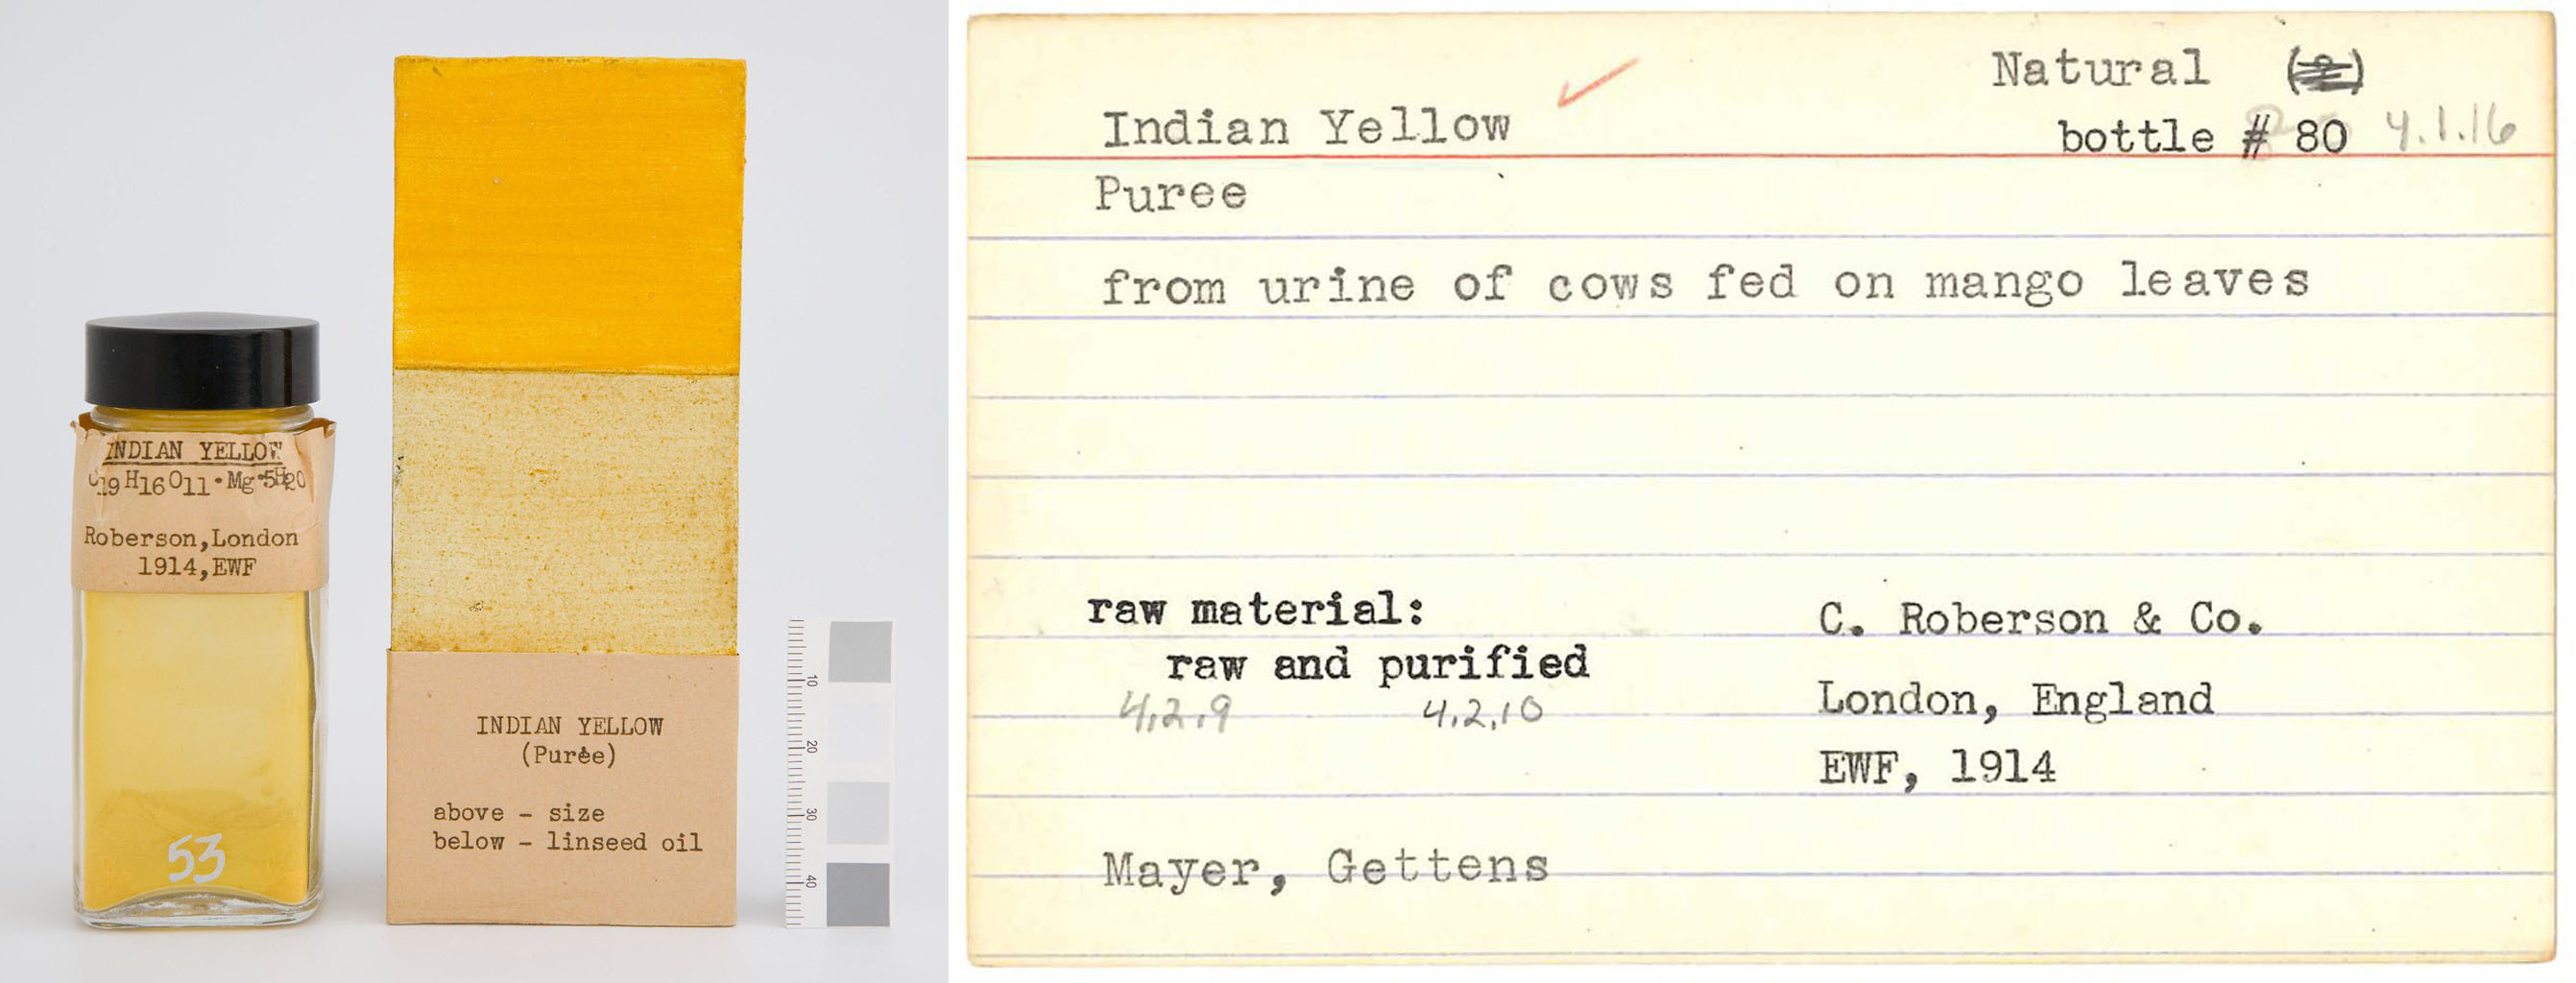 INDIAN YELLOW
C19H16O11•Mg•5H2O
Roberson,London
1914,EWF
53
INDIAN YELLOW
(Purée)
above - size
below - linseed oil
10
20
30
40
Natural
Indian Yellow
bottle # 80 4.1.16
Puree
from urine of cows fed on mango leaves
raw material:
raw and purified
4.2.9 4.2.10
C. Roberson & Co.
London, England
EWF, 1914
Mayer, Gettens